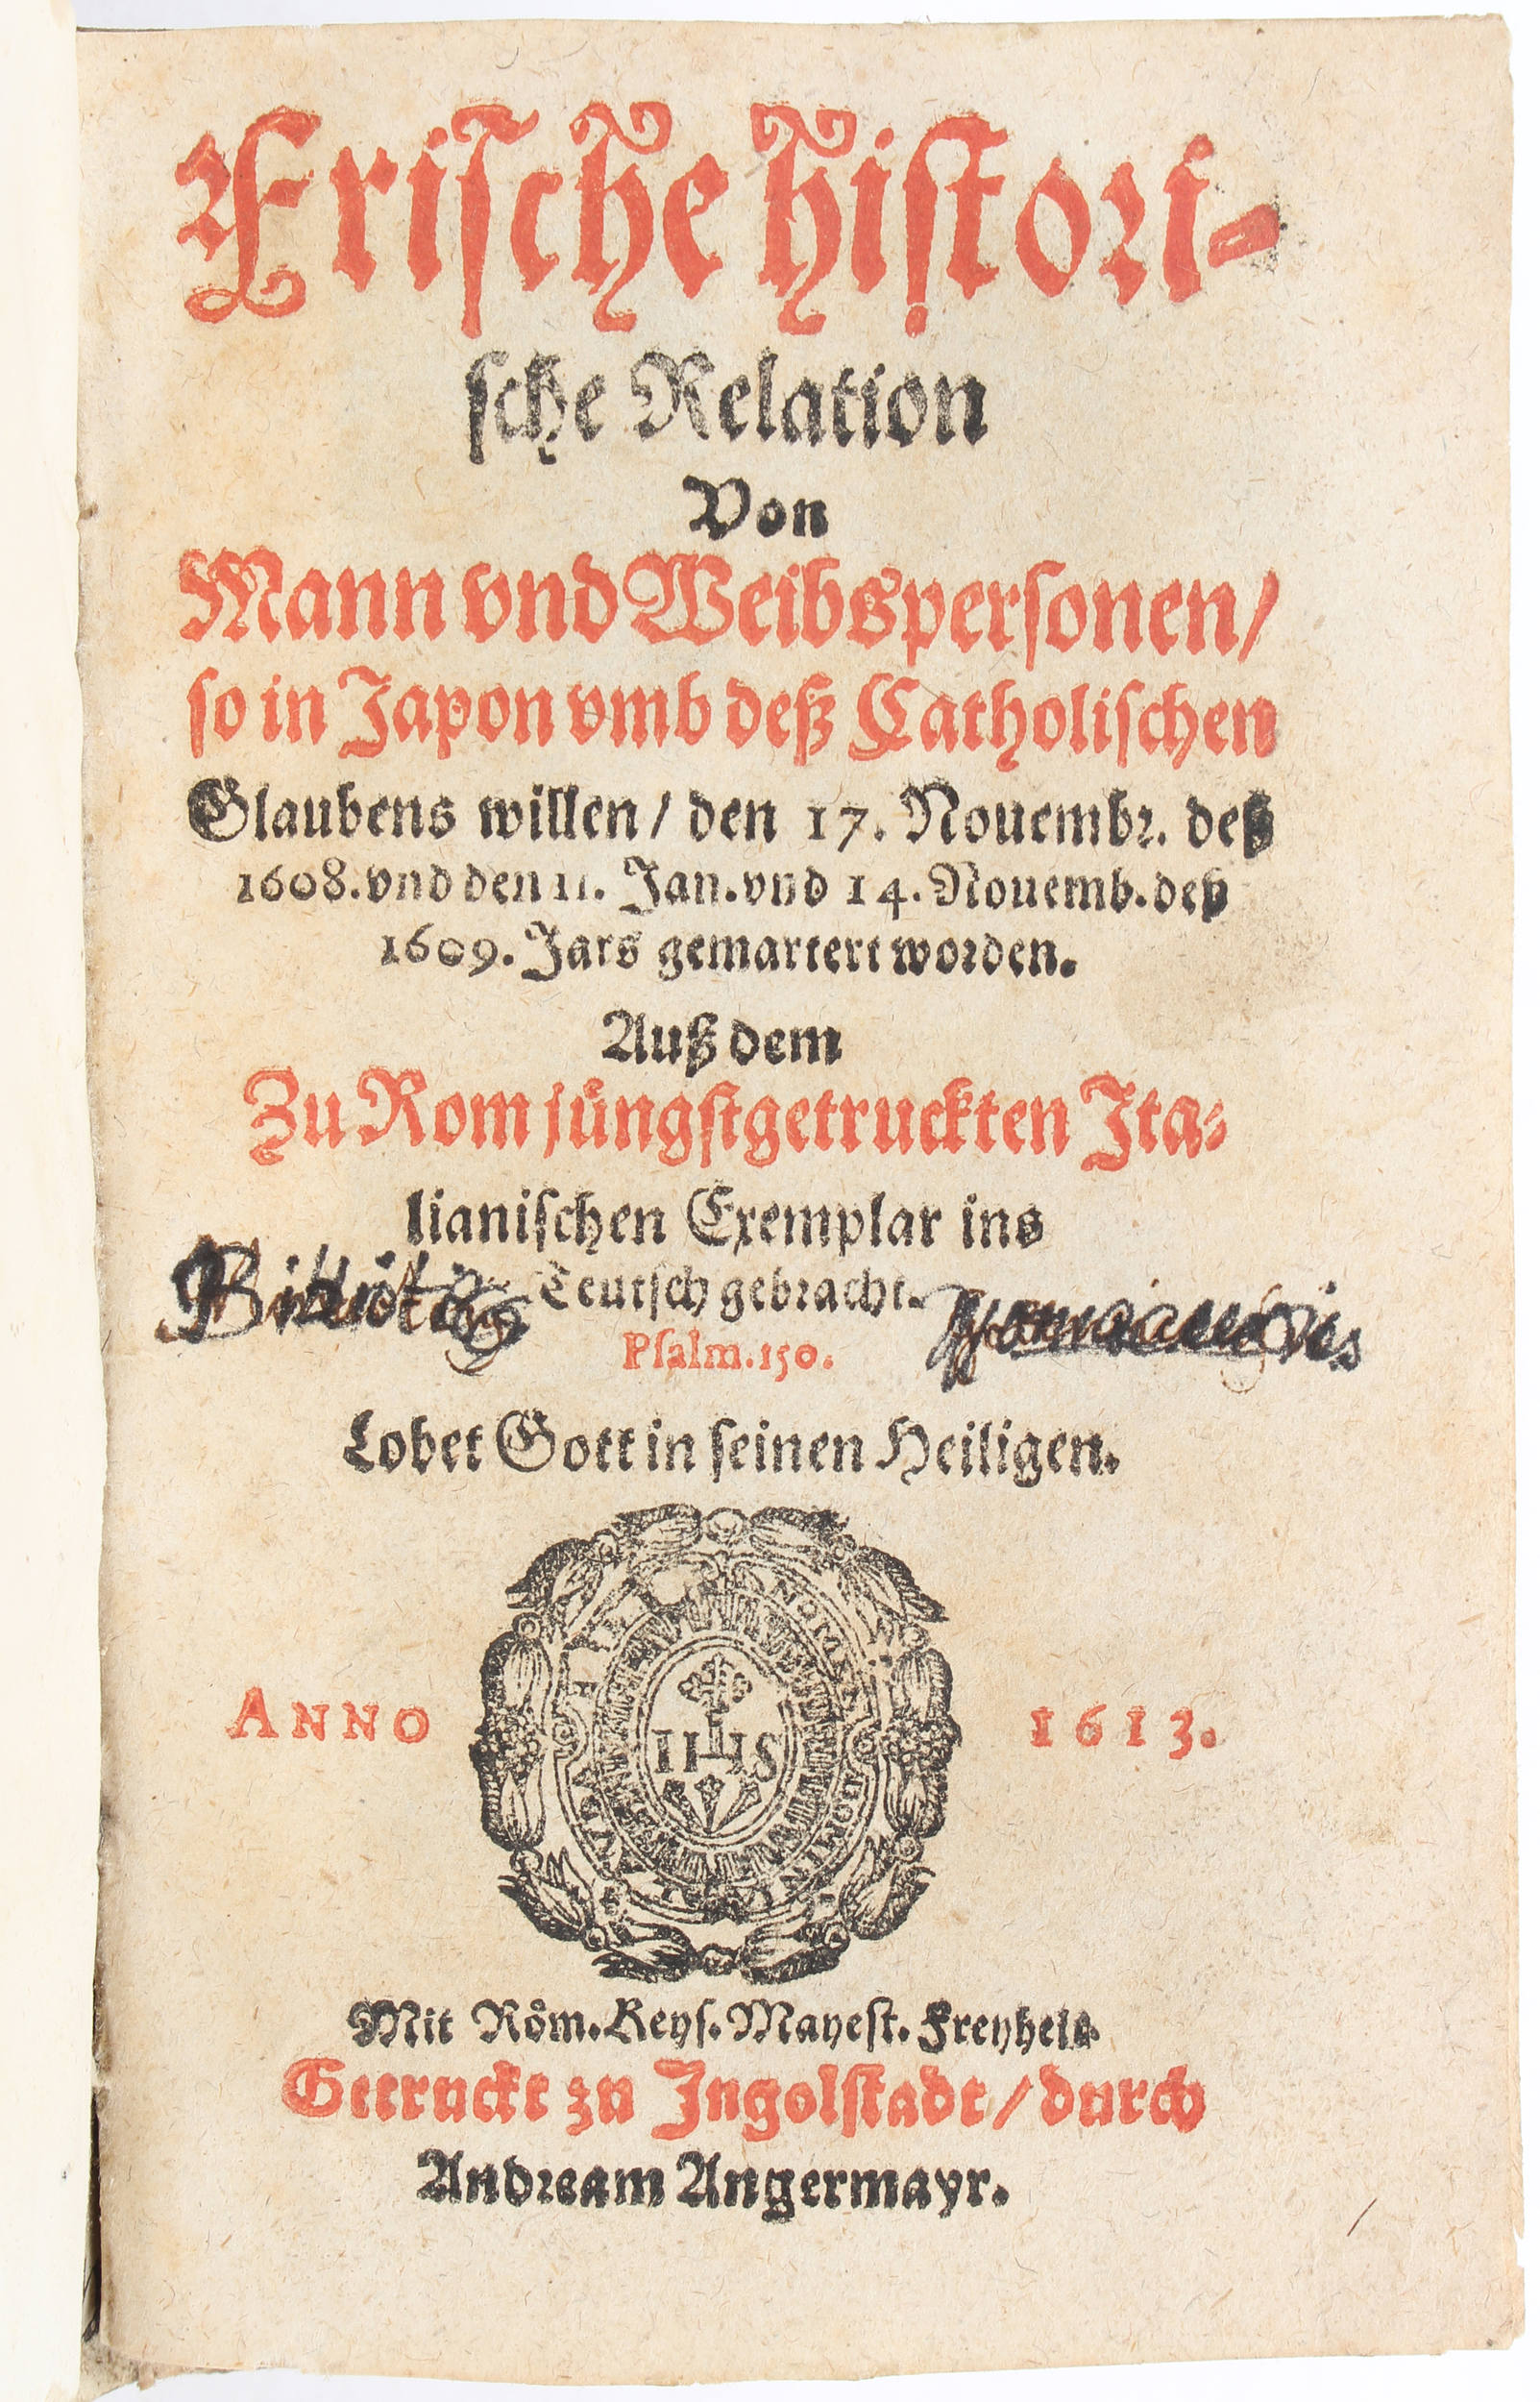 Frische histori-
sche Relation
Von
Mann vnd Weibspersonen/
so in Japon vmb deß Catholischen
Glaubens willen/ den 17. Nouembr. deß
1608. vnd den 11. Jan. vnd 14. Nouemb. deß
1609. Jars gemartert worden.
Auß dem
Zu Rom jüngstgetruckten Ita-
lianischen Exemplar ins
Teutsch gebracht.
Psalm. 150.
Lobet Gott in seinen Heiligen.
IHS
ANNO 1613.
Mit Röm. Keys. Mayest. Freyheit
Getruckt zu Ingolstadt/ durch
Andream Angermayr.